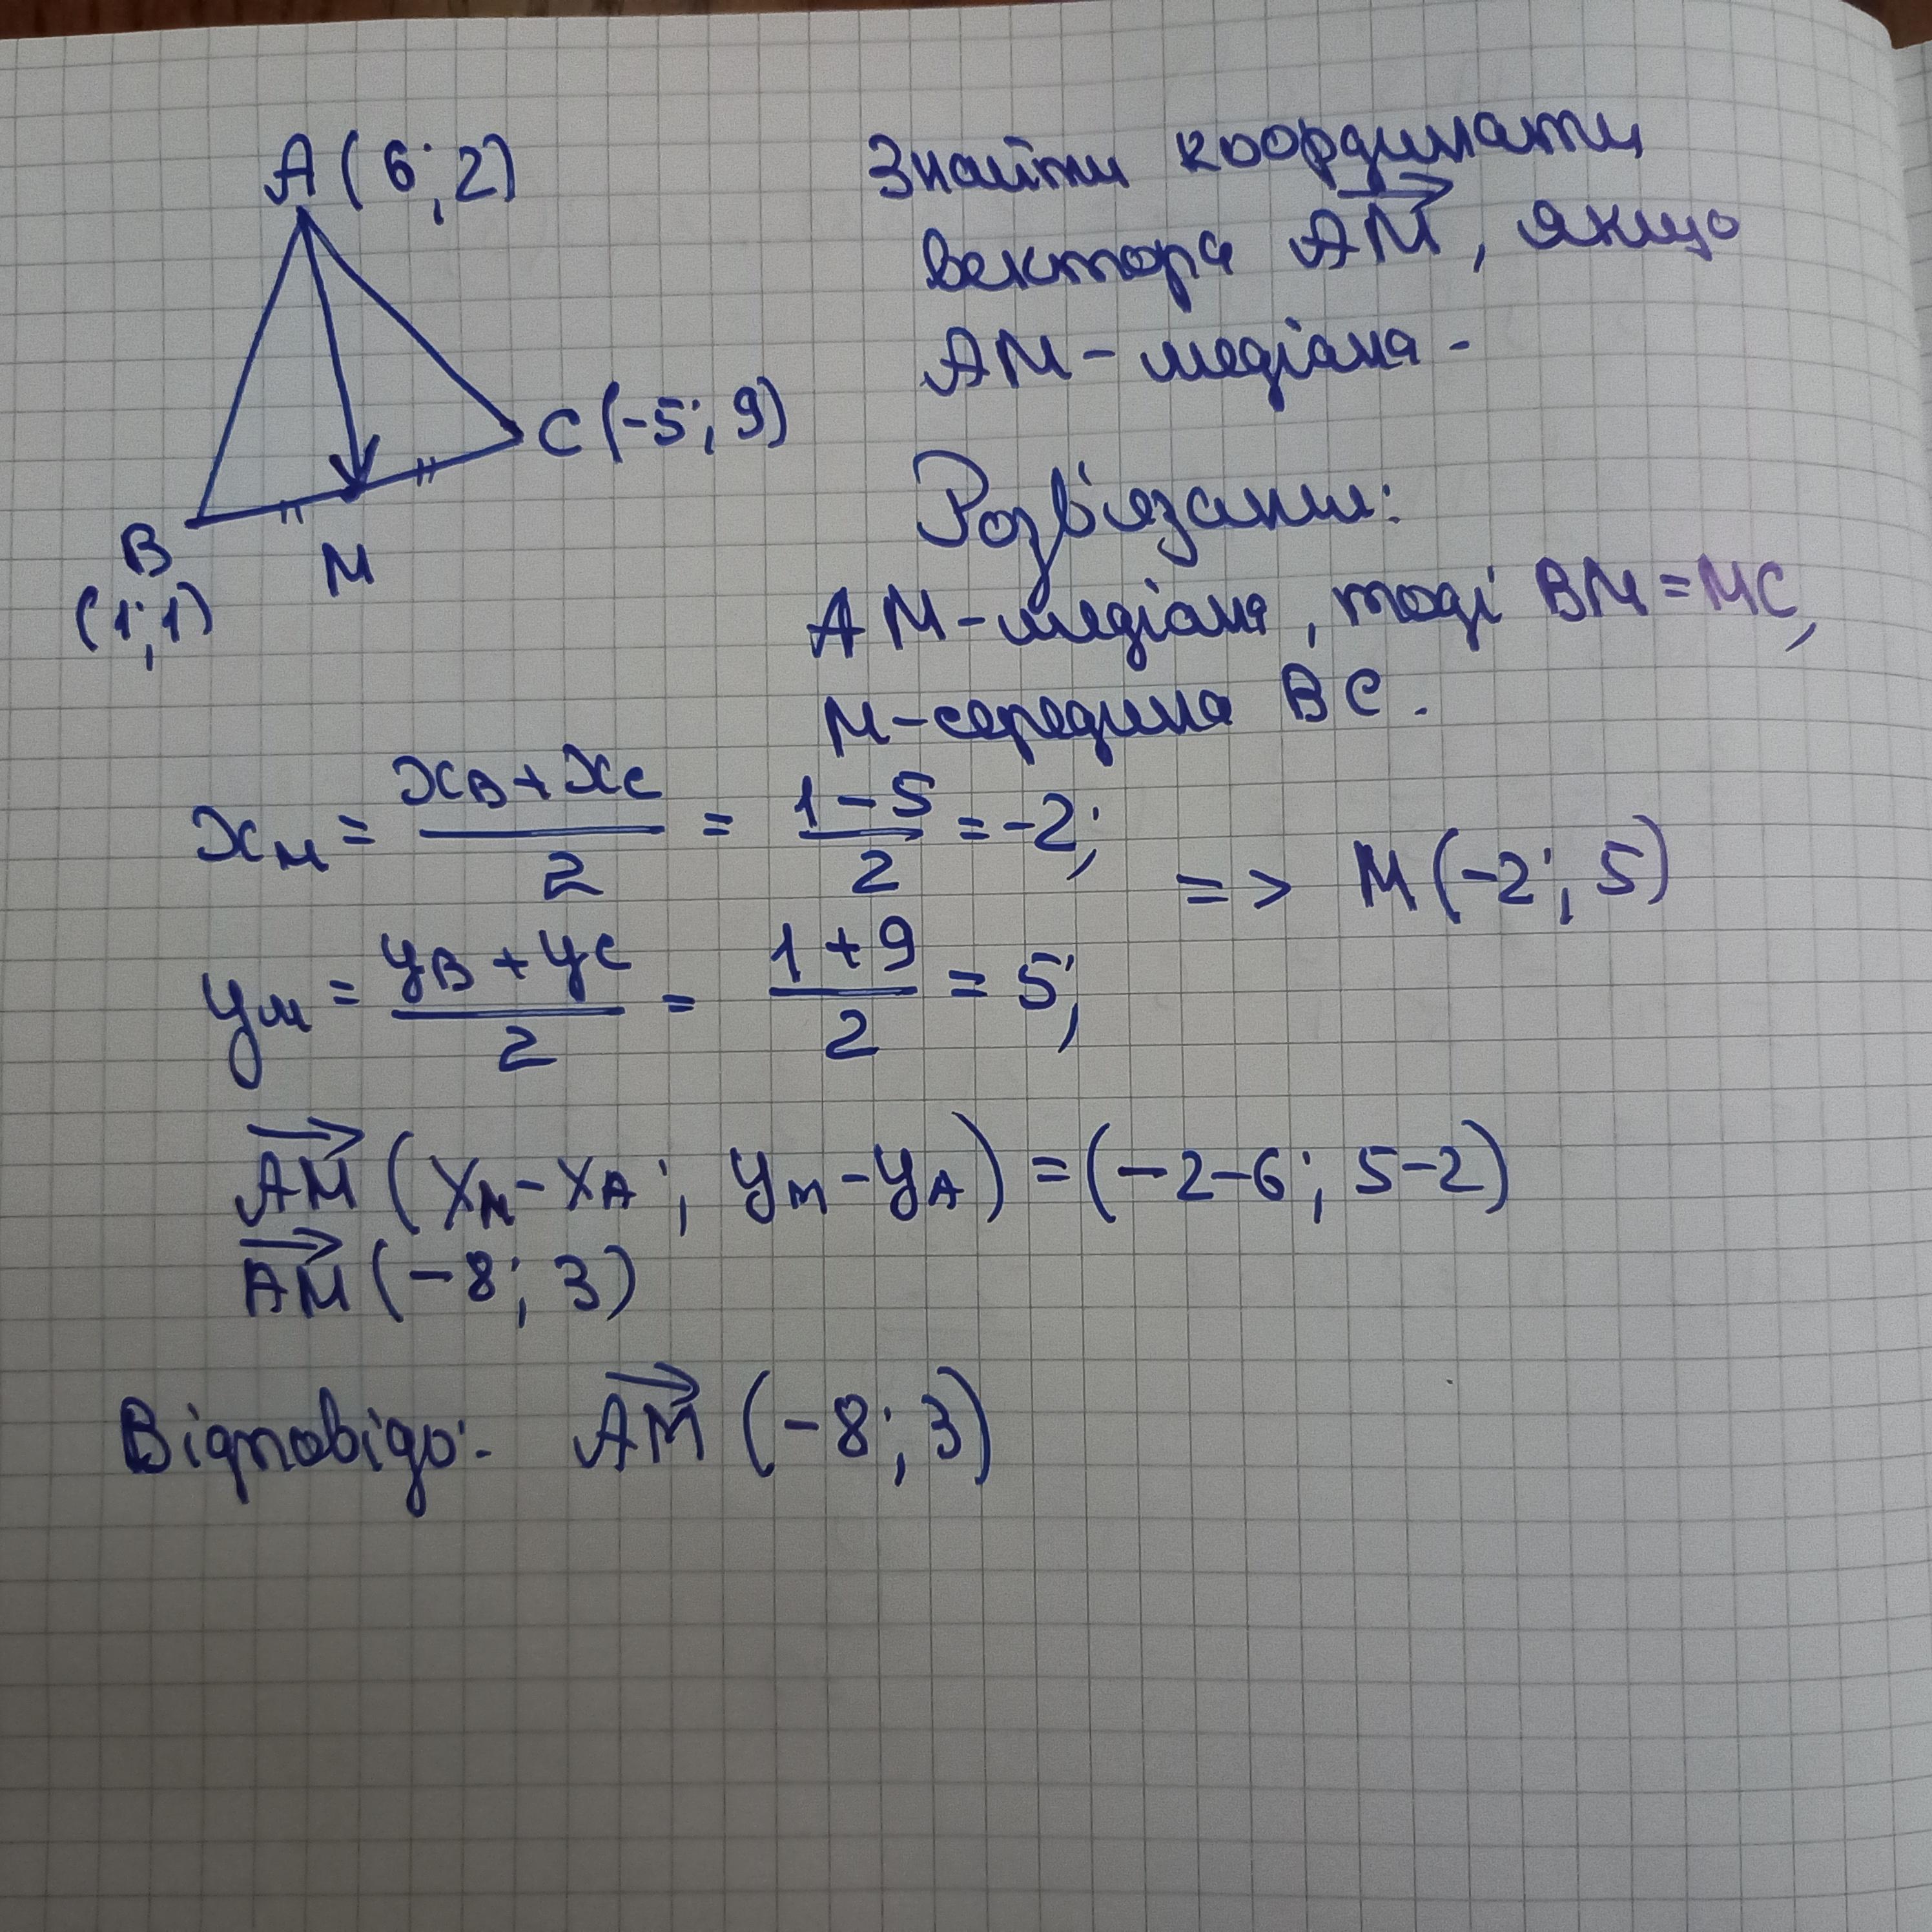 A (6; 2)
Знайти координати
вектора AM, якщо
AM - медіана.
C (-5; 9)
B
(1; 1)
M
Розв'язання:
AM - медіана, тоді BM = MC,
M - середина BC.
x_M = (x_B + x_C)/2 = (1 - 5)/2 = -2;
=> M (-2; 5)
y_M = (y_B + y_C)/2 = (1 + 9)/2 = 5;
AM (x_M - x_A; y_M - y_A) = (-2-6; 5-2)
AM (-8; 3)
Відповідь: AM (-8; 3)